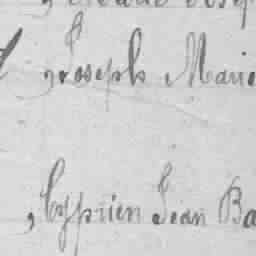 , Joseph Marie
, Cyprien Jean Ba